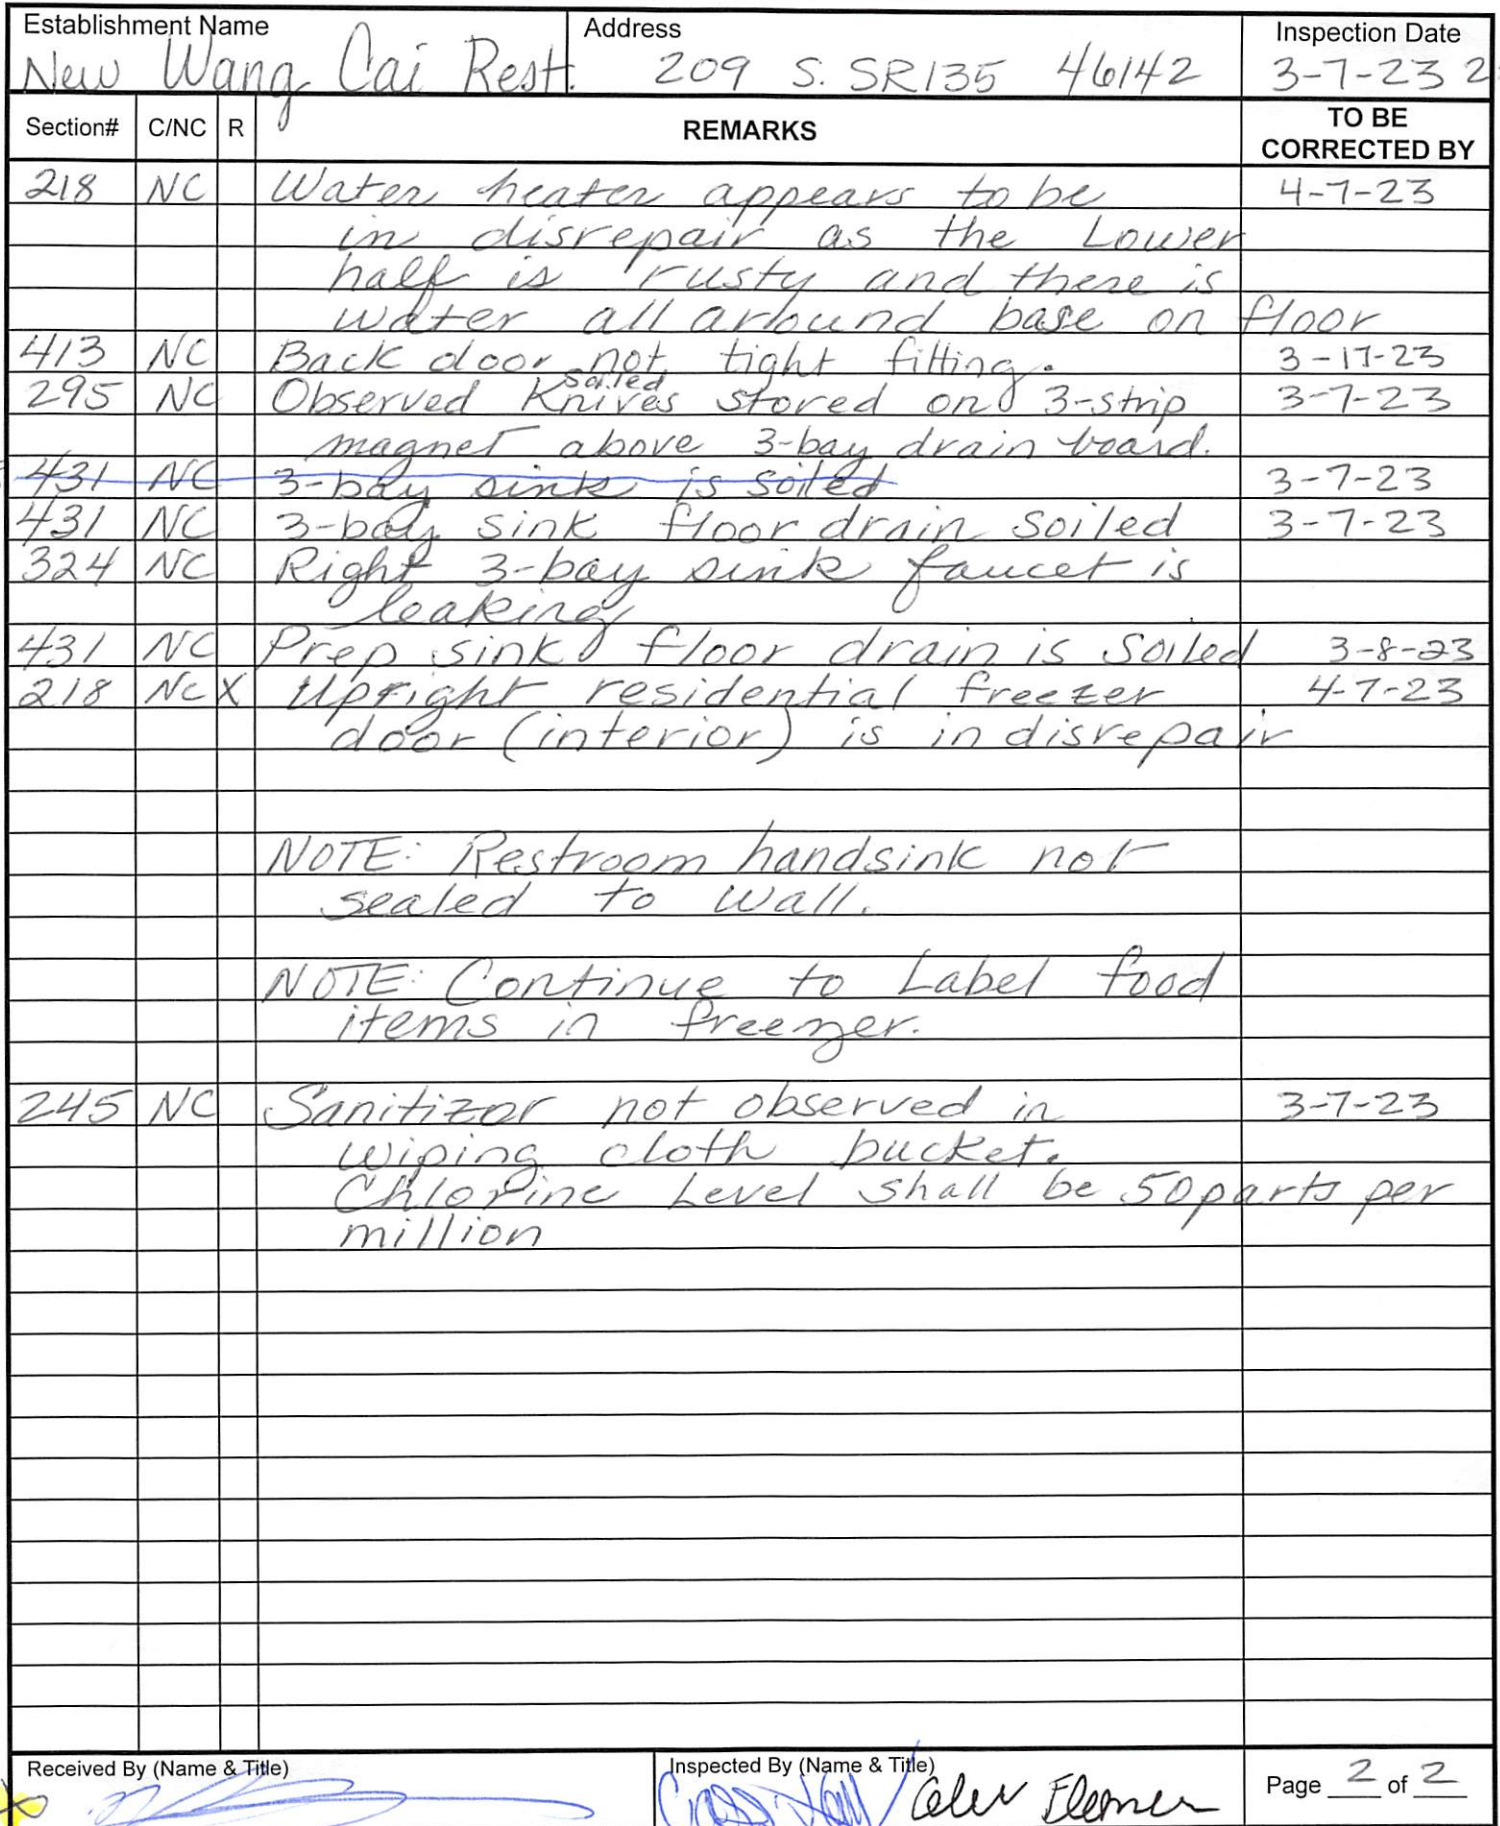 Establishment Name Address Inspection Date
New Wang Cai Rest. 209 S. SR135 46142 3-7-23 2
Section# C/NC R REMARKS TO BE CORRECTED BY
218 NC Water heater appears to be 4-7-23
in disrepair as the Lower
half is rusty and there is
water all around base on floor
413 NC Back door not tight fitting. 3-17-23
soiled
295 NC Observed Knives stored on 3-strip 3-7-23
magnet above 3-bay drain board.
431 NC 3-bay sink is soiled 3-7-23
431 NC 3-bay sink floor drain soiled 3-7-23
324 NC Right 3-bay sink faucet is
leaking
431 NC Prep sink floor drain is soiled 3-8-23
218 NC X Upright residential freezer 4-7-23
door (interior) is in disrepair
NOTE: Restroom handsink not
sealed to wall.
NOTE: Continue to Label food
items in freezer.
245 NC Sanitizor not observed in 3-7-23
wiping cloth bucket.
Chlorine Level shall be 50 parts per
million
Received By (Name & Title) Inspected By (Name & Title) Page 2 of 2